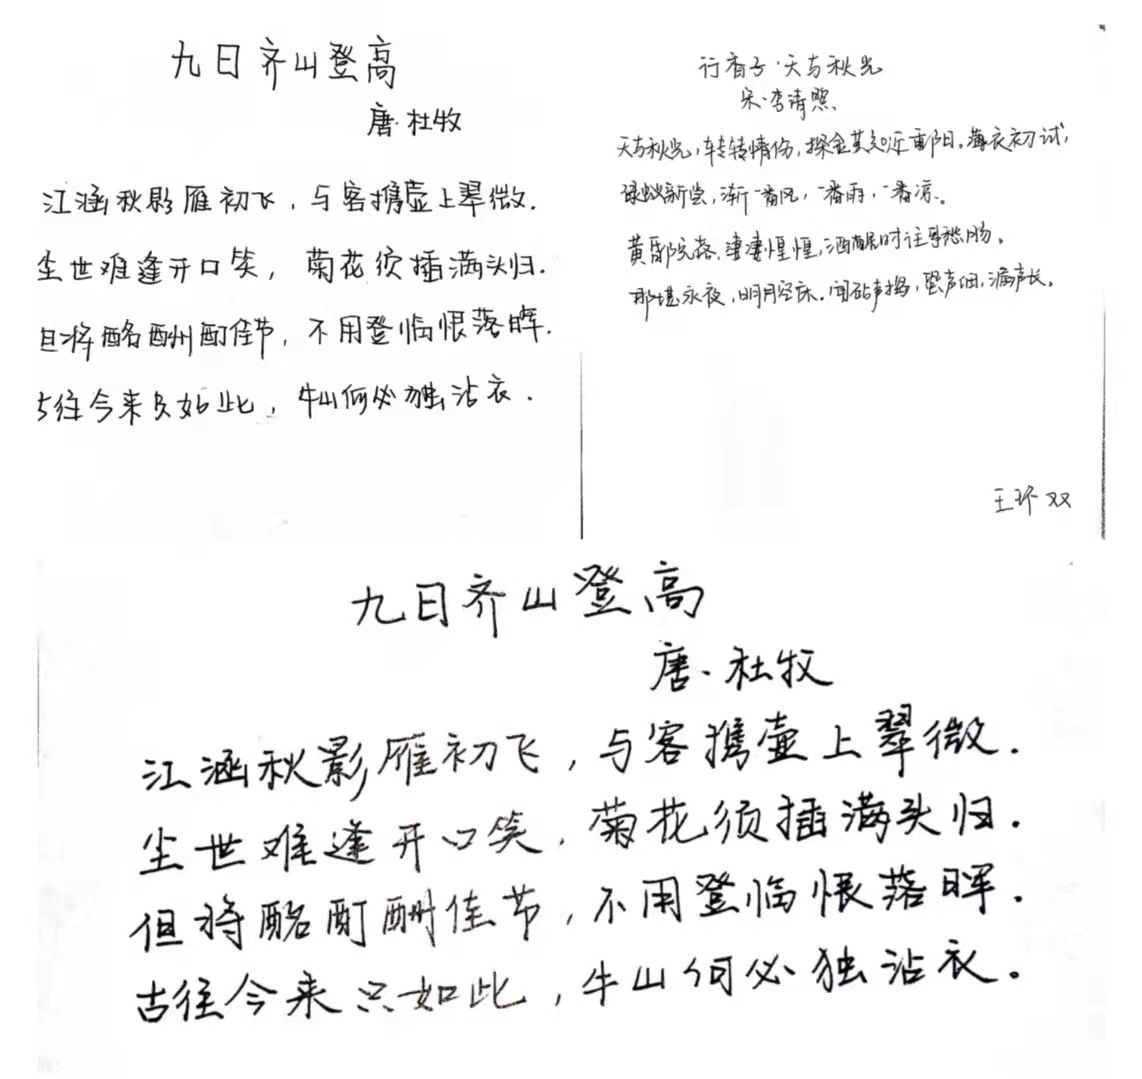 九日齐山登高
唐·杜牧
江涵秋影雁初飞，与客携壶上翠微．
尘世难逢开口笑，菊花须插满头归．
旦将酩酬酊佳节，不用登临恨落晖．
往今来只如此，牛山何必独沾衣．
行香子·天与秋光
宋·李清照
天与秋光，转转情伤，探金英知近重阳。薄衣初试，
绿蚁新尝，渐一番风，一番雨，一番凉。
黄昏院落，凄凄惶惶，酒醒时往事愁肠。
那堪永夜，明月空床。闻砧声捣，蛩声细，漏声长。
王环双
九日齐山登高
唐·杜牧
江涵秋影雁初飞，与客携壶上翠微．
尘世难逢开口笑，菊花须插满头归．
但将酩酊酬佳节，不用登临恨落晖．
古往今来只如此，牛山何必独沾衣。